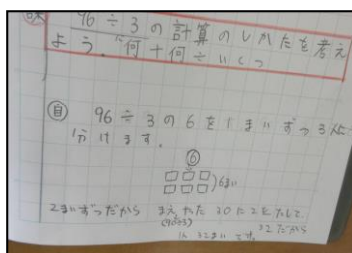 96÷3の計算のしかたを考え
よう。何十何÷いくつ
自 96÷3の6を1まいずつ3人に
分けます。
6
6まい
2まいずつだから まえ 30に2をたして
(90÷3) 32だから
32まいです。